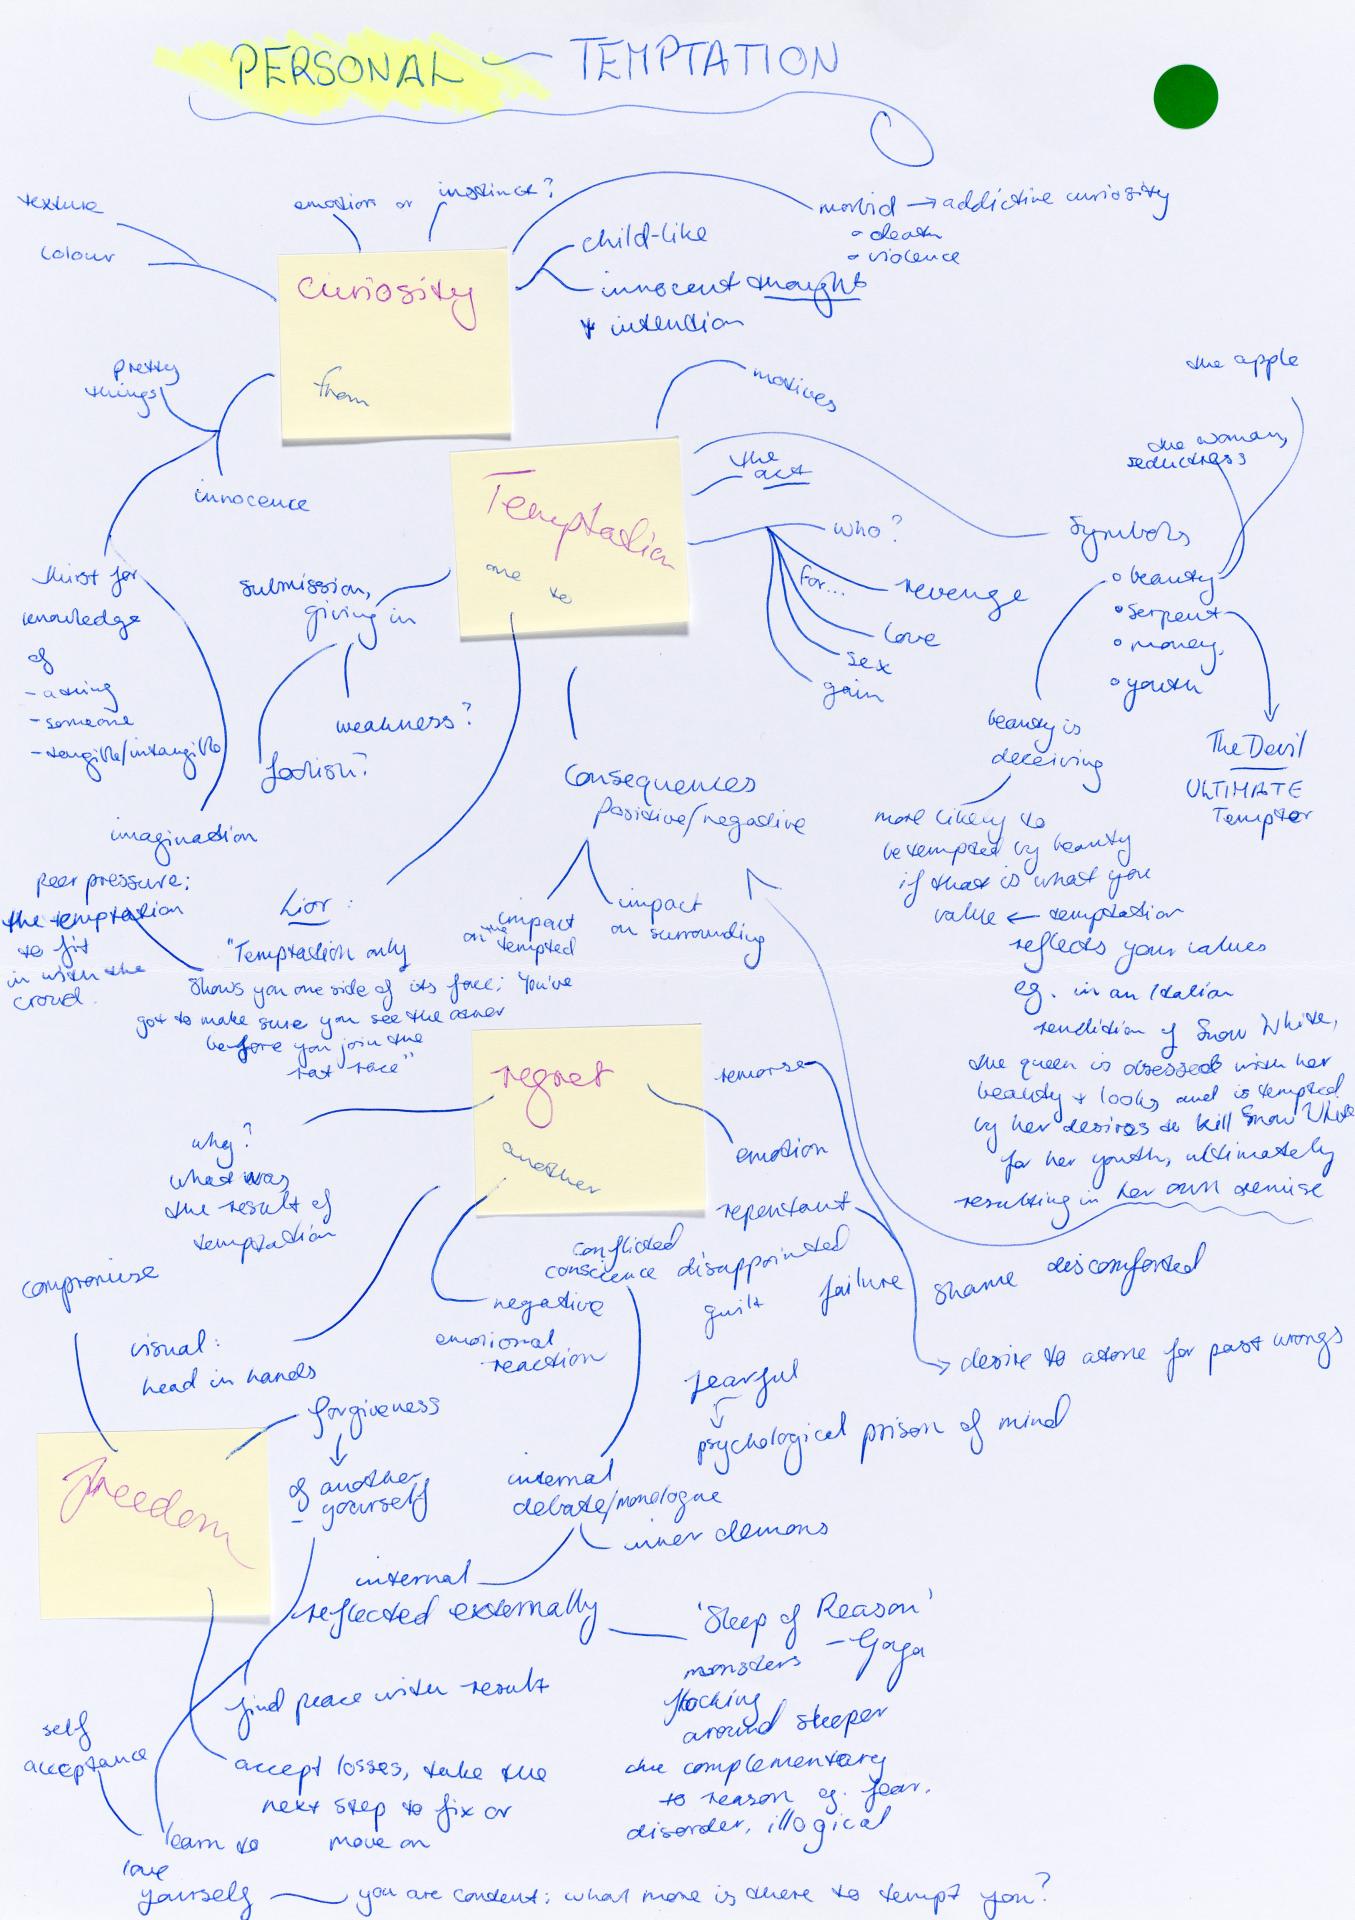 PERSONAL — TEMPTATION
texture
colour
emotion or instinct?
curiosity
from
child-like
innocent thought
+ intention
morbid → addictive curiosity
death
violence
pretty
things
innocence
thirst for
knowledge
of
- a thing
- someone
- tangible/intangible
imagination
Temptation
one to
motives
the
act
who?
for...
revenge
love
sex
gain
Symbols
beauty
serpent
money
youth
the apple
the woman,
seductress
The Devil
ULTIMATE
Tempter
beauty is
deceiving
more likely to
be tempted by beauty
if that is what you
value ← temptation
reflects your values
eg. in an Italian
rendition of Snow White,
the queen is obsessed with her
beauty + looks and is tempted
by her desires to kill Snow White
for her youth, ultimately
resulting in her own demise
submission,
giving in
weakness?
Consequences
positive/negative
impact
on the tempted
impact
on surrounding
peer pressure:
the temptation
to fit
in with the
crowd.
Lior:
"Temptation only
shows you one side of its face; You've
got to make sure you see the other
before you join the
rat race"
regret
another
why?
what was
the result of
temptation
remorse
emotion
repentant
conflicted
conscience
disappointed
guilt
failure
shame
discomforted
desire to atone for past wrongs
negative
emotional
reaction
fearful
psychological prison of mind
compromise
visual:
head in hands
freedom
forgiveness
of another
yourself
internal
debate/monologue
inner demons
internal
reflected externally
'Sleep of Reason'
- Goya
monsters
flocking
around sleeper
the complementary
to reason eg. fear.
disorder, illogical
find peace with result
self
acceptance
accept losses, take the
next step to fix or
move on
learn to
love
yourself — you are content: what more is there to tempt you?